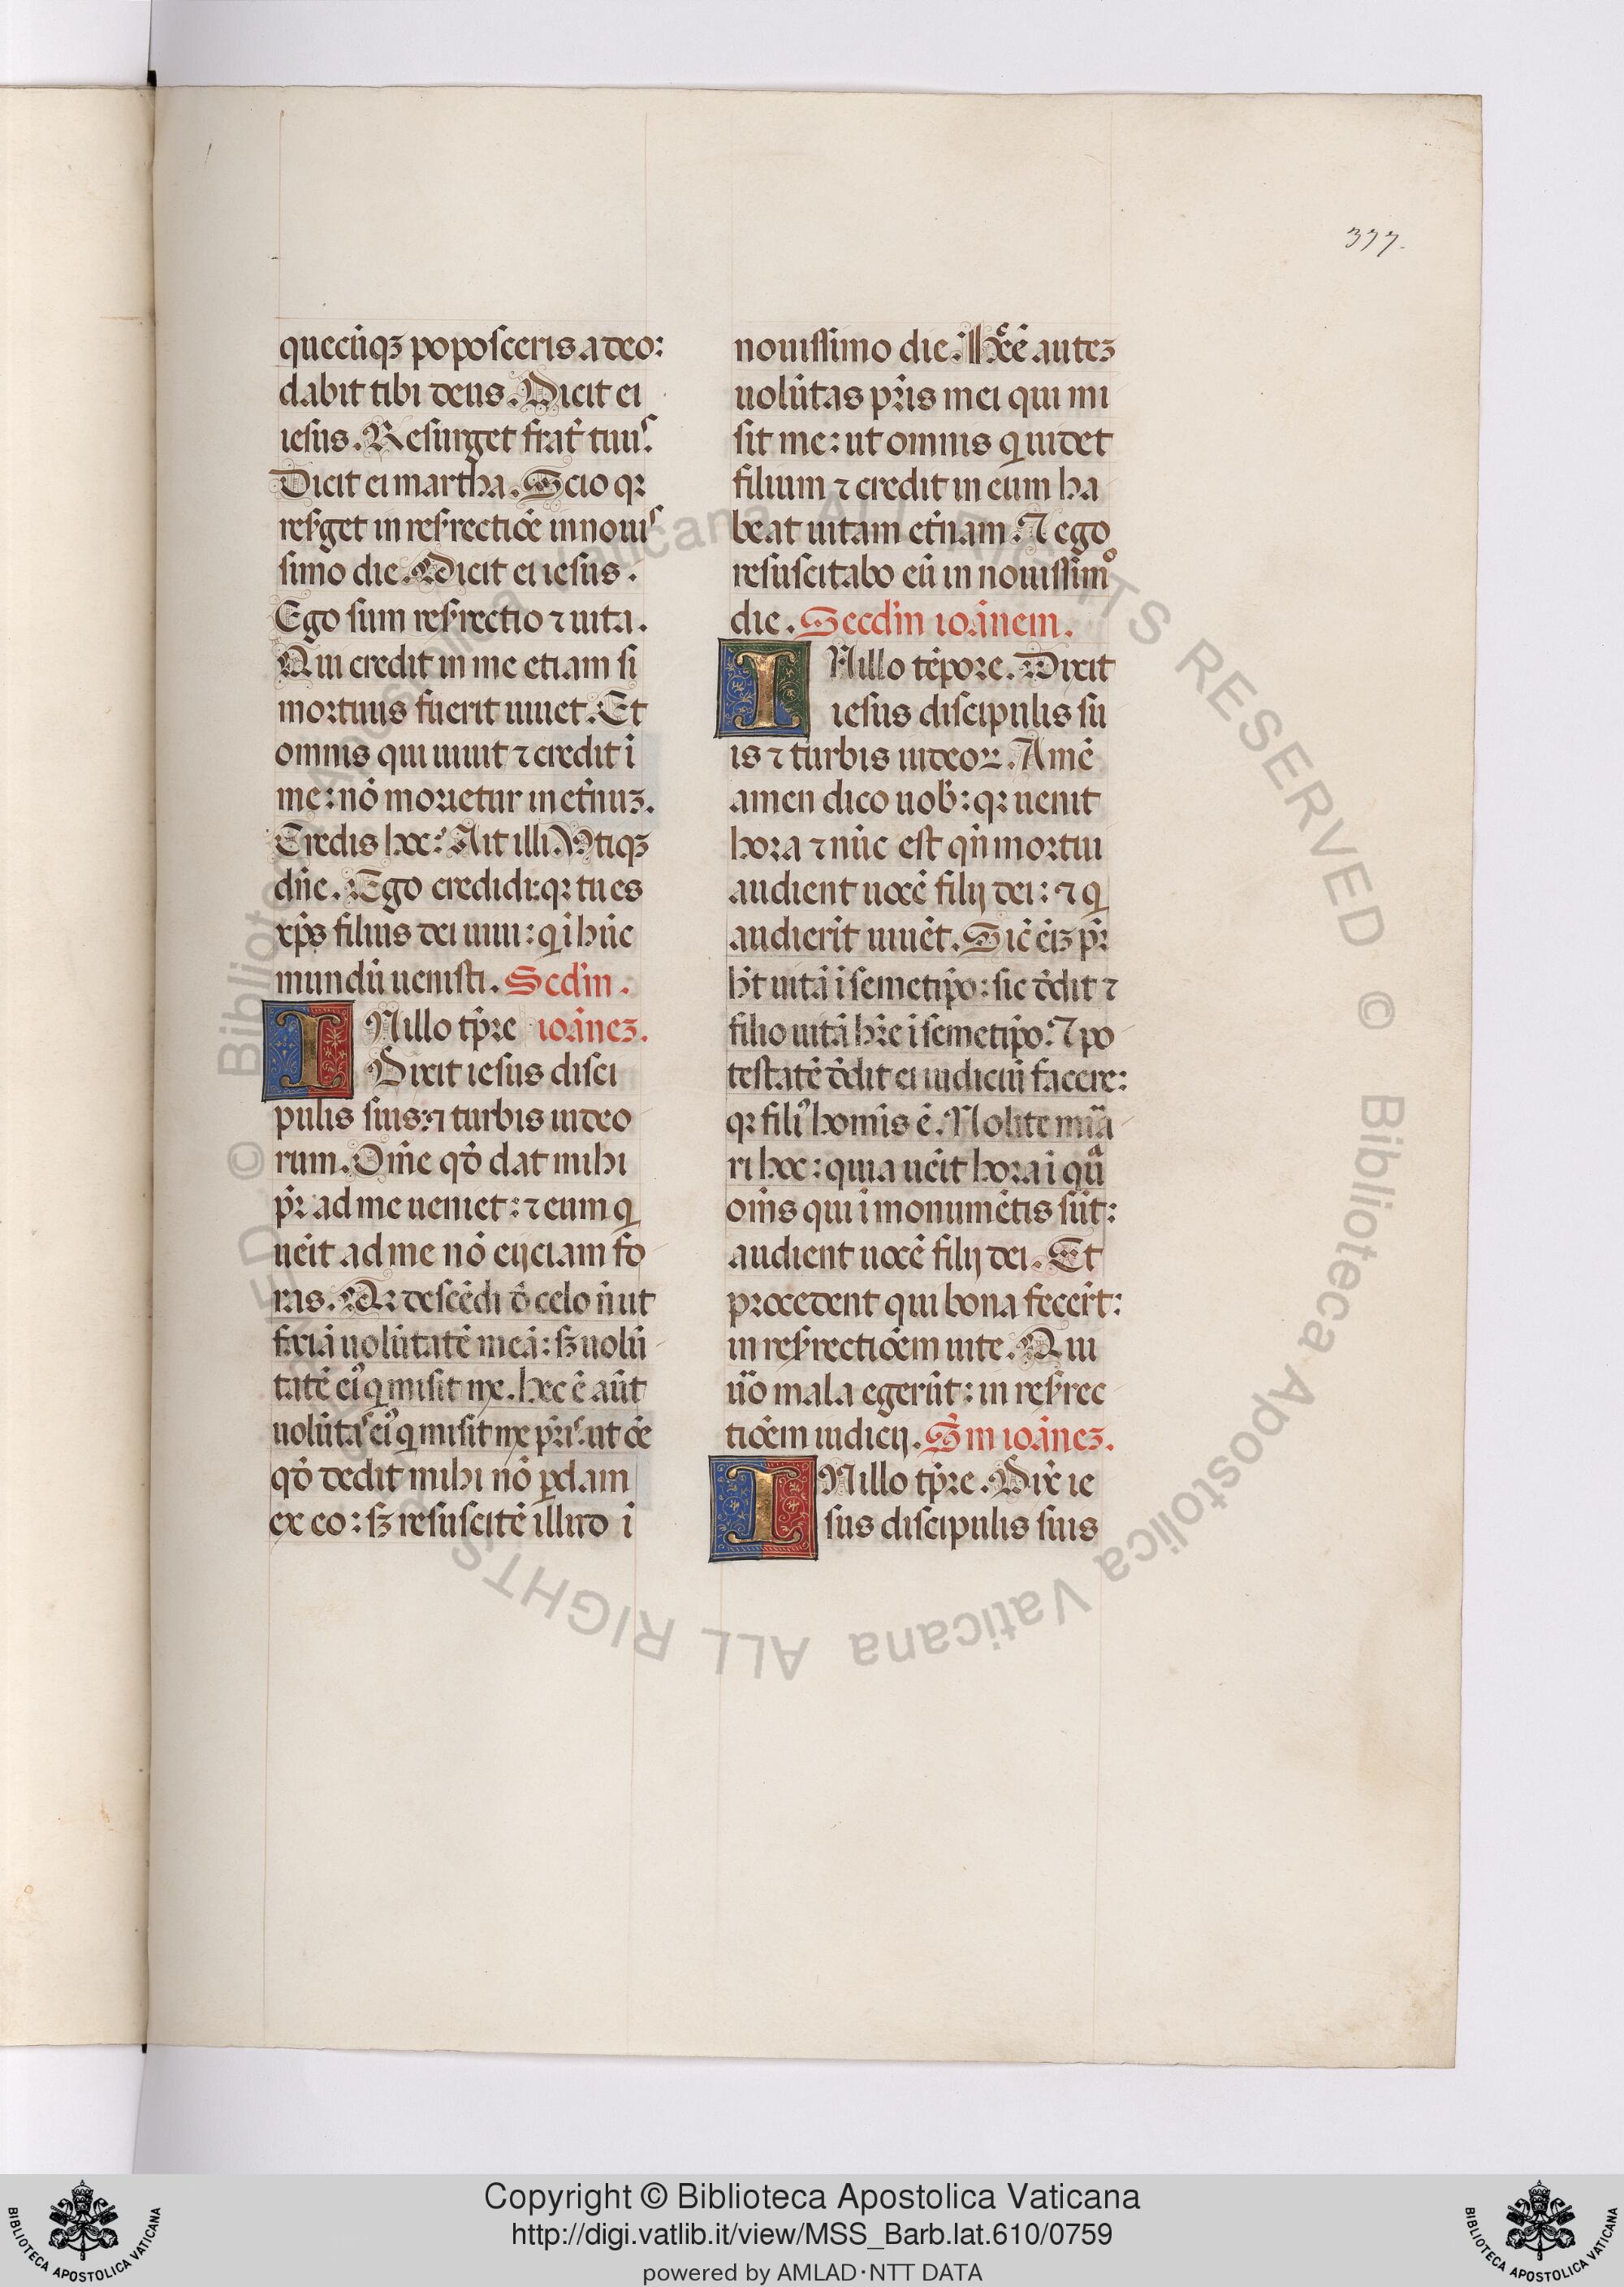 377.
quecūqꝫ poposceris a deo:
dabit tibi deus. Dicit ei
iesus. Resurget frat̄ tuus.
Dicit ei martha. Scio qꝛ
resꝰget in resꝰrectiōe in nouis
simo die. Dicit ei iesus.
Ego sum resꝰrectio ⁊ uita.
Qui credit in me etiam si
mortuus fuerit uiuet. Et
omnis qui uiuit ⁊ credit ī
me: nō morietur in et̄nuꝫ.
Credis hoc: Ait illi. Utiqꝫ
dn̄e. Ego credidi: qꝛ tu es
xp̄s filius dei uiui: qi hūc
mundū uenisti. Scdm̄.
IN illo tp̄re ioāneꝫ.
Dixit iesus disci
pulis suis: ⁊ turbis iudeo
rum. Om̄e qd̄ dat mihi
pr̄ ad me ueniet: ⁊ eum q
uēit ad me nō eijciam fo
ras. Qꝛ descēdi d̄ celo n̄ ut
faciā uolūtatē meā: sꝫ uolū
tatē eiꝰ q misit me. hec ē aūt
uolūtas eiꝰ q misit me pr̄is. ut oē
qd̄ dedit mihi nō ꝑdam
ex eo: sꝫ resuscitē illud ī
nouissimo die. Hec ē auteꝫ
uolūtas pr̄is mei qui mi
sit me: ut omnis q uidet
filium ⁊ credit in eum ha
beat uitam et̄nam. ⁊ ego
resuscitabo eū in nouissimo
die. Secdm̄ ioānem.
IN illo tēpore. Dixit
iesus discipulis su
is ⁊ turbis iudeoꝝ. Amē
amen dico uob̄: qꝛ uenit
hora ⁊ nūc est qn̄ mortui
audient uocē filij dei: ⁊ q
audierīt uiuēt. Sic eīꝫ pr̄
hꝫt uitā ī semetip̄o: sic d̄dit ⁊
filio uitā hr̄e ī semetip̄o. ⁊ po
testatē d̄dit ei iudiciū facere:
qꝛ filiꝰ hoīs ē. Nolite mira
ri hoc: quia uēit hora ī qua
om̄s qui ī monumētis sūt:
audient uocē filij dei. Et
procedent qui bona fecer̄t:
in resꝰrectiōem uite. Qui
ūo mala egerūt: in resꝰrec
tiōem iudicij. Sm̄ ioāneꝫ.
IN illo tp̄re. Dix̄ ie
sus discipulis suis
© Biblioteca Apostolica Vaticana ALL RIGHTS RESERVED © Biblioteca Apostolica Vaticana ALL RIGHTS RESERVED
Copyright © Biblioteca Apostolica Vaticana
http://digi.vatlib.it/view/MSS_Barb.lat.610/0759
powered by AMLAD·NTT DATA
BIBLIOTECA APOSTOLICA VATICANA
BIBLIOTECA APOSTOLICA VATICANA